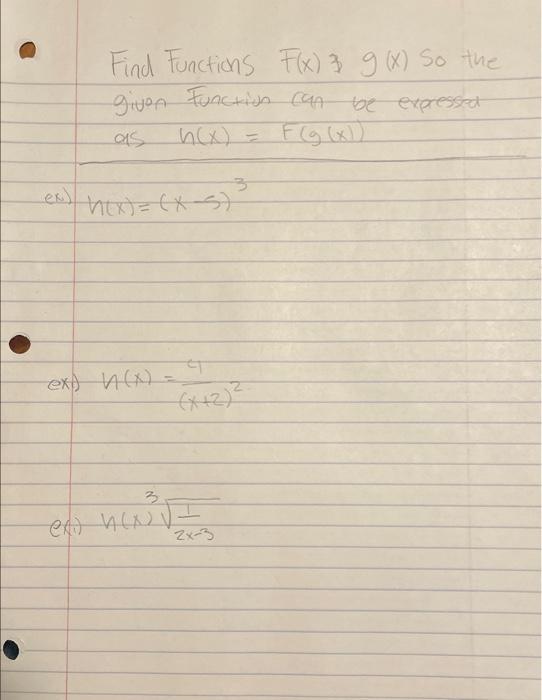 Find Functions F(x) & g(x) so the
given function can be expressed
as h(x) = F(g(x))
ex) h(x) = (x-5)³
ex) h(x) = 4/(x+2)²
ex) h(x) ∛(1/(2x-3))